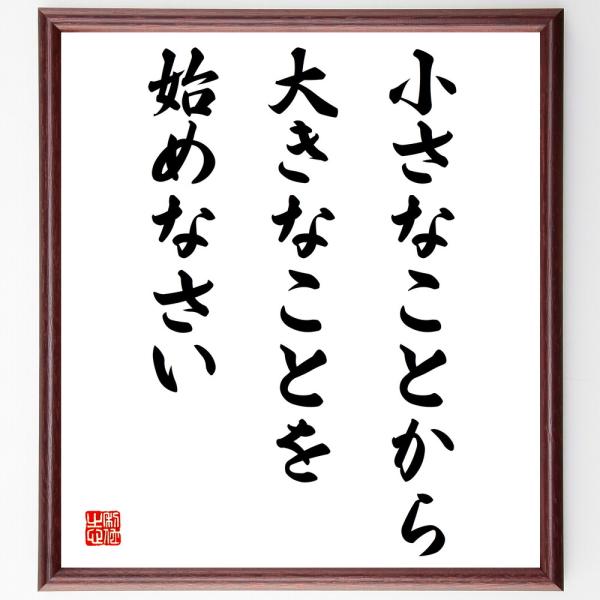 小さなことから
大きなことを
始めなさい